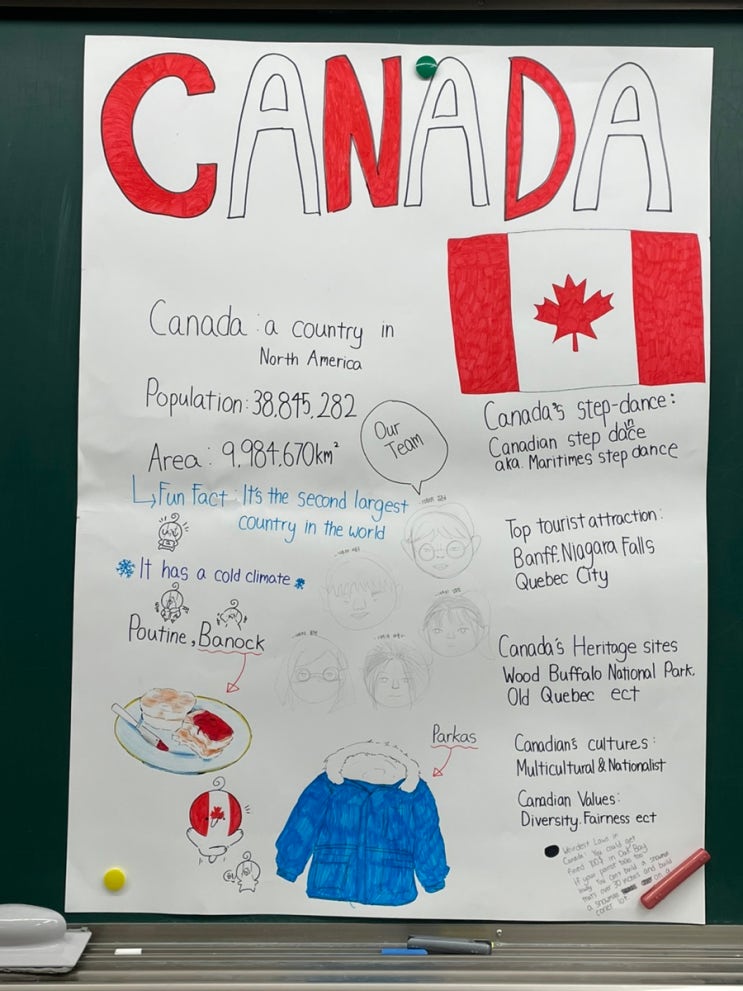 CANADA
Canada : a country in
North America
Population: 38,845,282
Area : 9,984,670km²
Fun Fact : It's the second largest
country in the world
It has a cold climate
Poutine, Banock
Our
Team
Parkas
Canada's step-dance :
Canadian step dance
aka. Maritimes step dance
Top tourist attraction :
Banff. Niagara Falls
Quebec City
Canada's Heritage sites
Wood Buffalo National Park,
Old Quebec ect
Canadian's cultures :
Multicultural & Nationalist
Canadian Values:
Diversity. Fairness ect
Weirdest Laws in
Canada: You could get
fined 100$ in Oak Bay
if your parrot talks too
loudly. You can't build a snowman
that's over 30 inches and build
a snowman on a
coner lot.